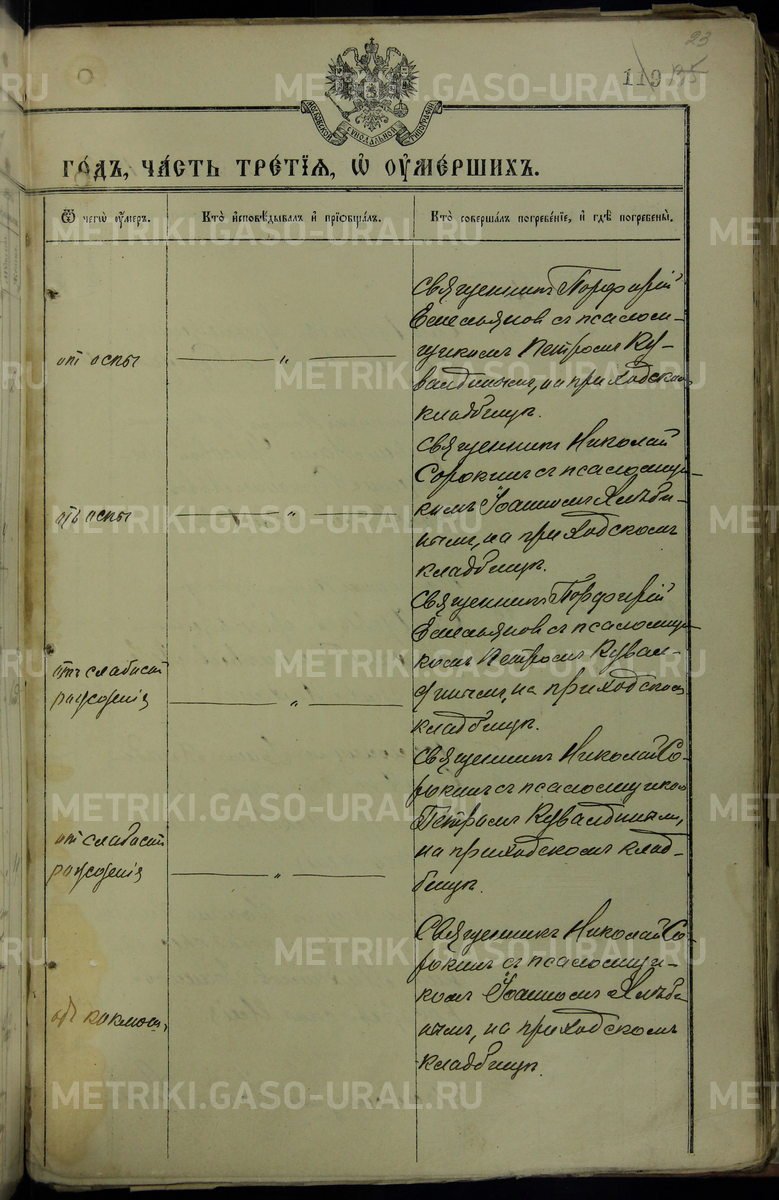 23
119 135
МОСКОВСКОЙ СѴНОДАЛЬНОЙ ТИПОГРАФІИ
го́дъ, ча́сть тре́тїѧ, ѡ҆ ᲂу҆ме́ршихъ.
Ѿ чегѡ̀ ᲂу҆́меръ.
Кто̀ и҆сповѣ́дывалъ и҆ прїѻбща́лъ.
Кто̀ соверша́лъ погребе́нїе, и҆ гдѣ̀ погребены̀.
отъ оспы
— „ —
Священникъ Порфирій
Емельянов съ псалом-
щикомъ Петромъ Ку-
валдинымъ, на приходском
кладбищѣ.
отъ оспы
— „ —
Священникъ Николай
Сорокинъ съ псаломщи-
комъ Іоанномъ Хлѣби-
нымъ, на приходскомъ
кладбищѣ.
отъ слабости
рожденія
— „ —
Священникъ Порфирій
Емельянов съ псаломщи-
комъ Петромъ Кувал-
динымъ, на приходском
кладбищѣ.
от слабости
рожденія
— „ —
Священникъ Николай Со-
рокинъ съ псаломщиком
Петромъ Кувалдинымъ,
на приходскомъ клад-
бищѣ.
отъ коклюша
Священникъ Николай Со-
рокинъ съ псаломщи-
комъ Іоанномъ Хлѣби-
нымъ, на приходскомъ
кладбищѣ.
METRIKI.GASO-URAL.RU